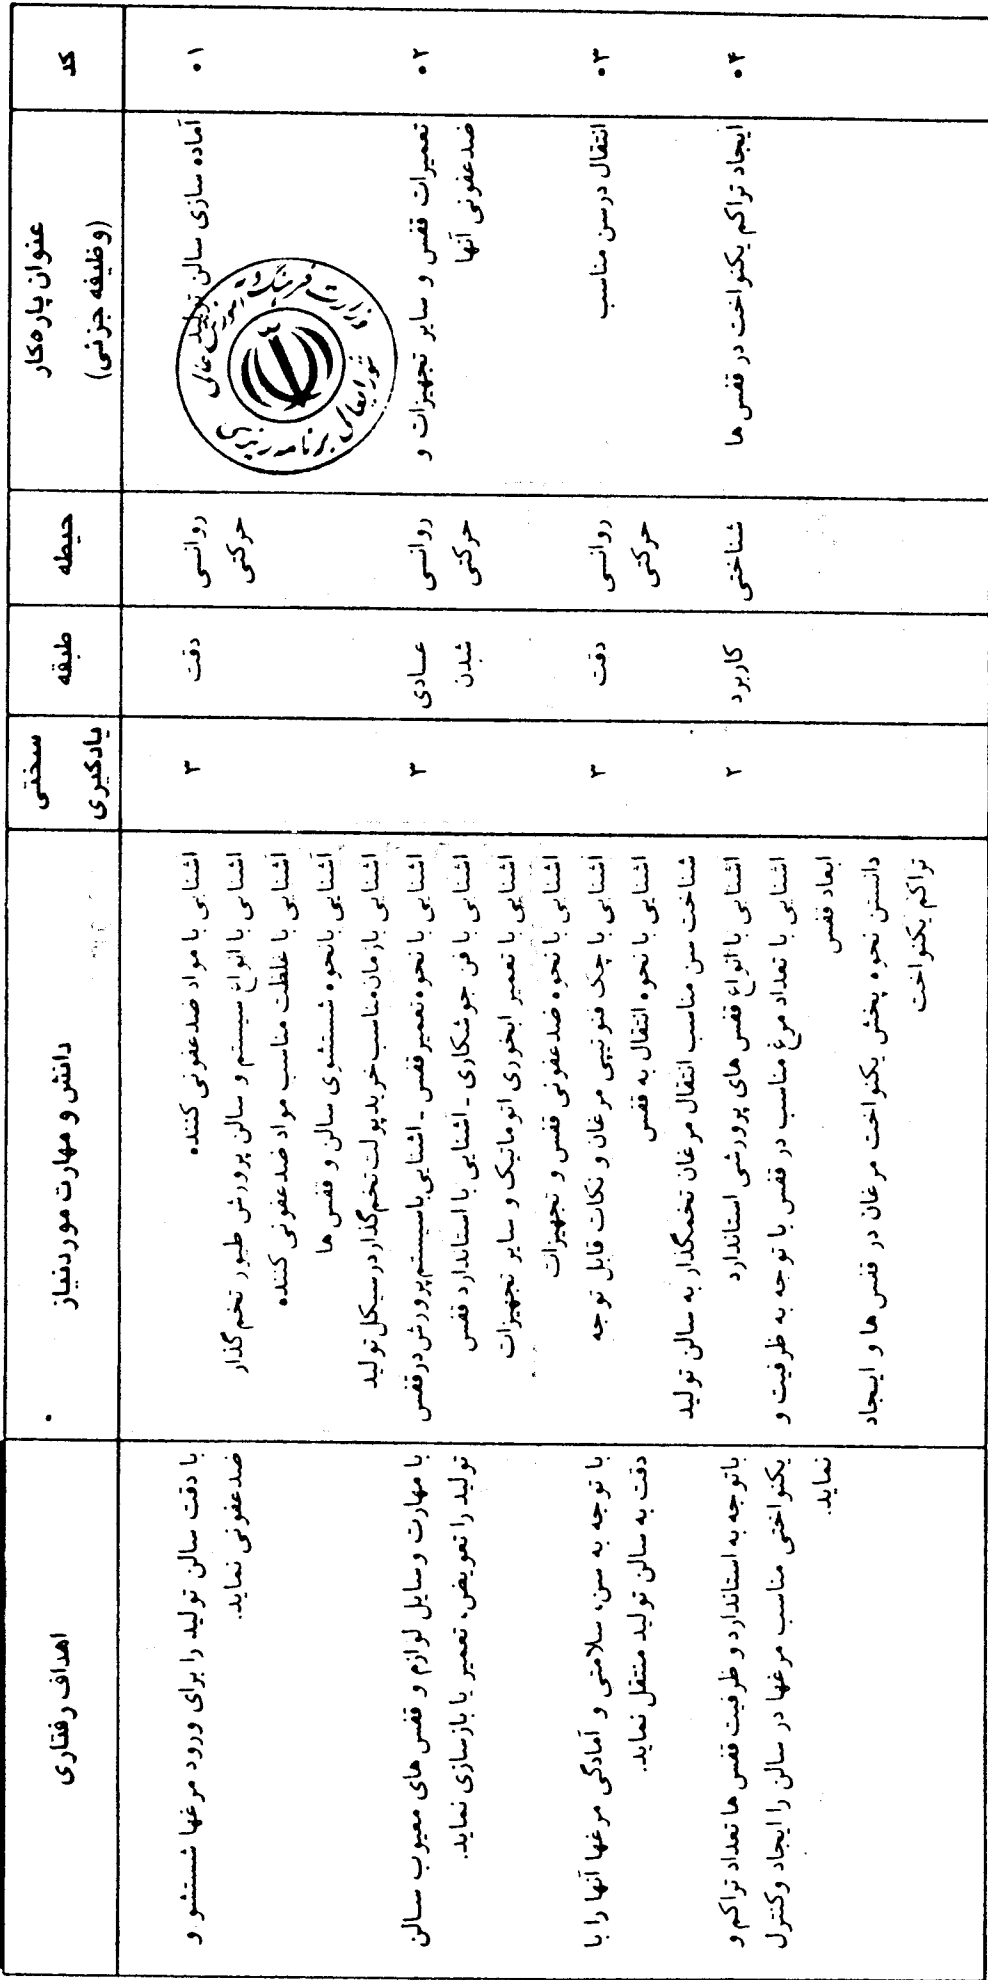 کد
عنوان پاره‌کار
(وظیفه جزئی)
حیطه
طبقه
سختی
یادگیری
دانش و مهارت موردنیاز
اهداف رفتاری
۰۱
آماده سازی سالن تولید
روانـی
حرکتی
دقت
۳
اشنایی با مواد ضدعفونی کننده
اشنایی با انواع سیستم و سالن پرورش طیور تخم گذار
اشنایی با غلظت مناسب مواد ضدعفونی کننده
آشنایی بانحوه شستشوی سالن و قفس ها
اشنایی بازمان‌مناسب‌خریدپولت‌تخم‌گذاردرسیکل‌تولید
با دقت سالن تولید را برای ورود مرغها شستشو و
ضدعفونی نماید.
۰۲
تعمیرات قفس و سایر تجهیزات و
ضدعفونی آنها
روانـی
حرکتی
عـادی
شدن
۳
اشنایی با نحوه‌تعمیرقفس ـ اشنایی‌باسیستم‌پرورش‌درقفس
اشنایی با فن جوشکاری ـ اشنایی با استاندارد قفس
اشنایی با تعمیر ابخوری اتوماتیک و سایر تجهیزات
اشنایی با نحوه ضدعفونی قفس و تجهیزات
با مهارت وسایل لوازم و قفس های معیوب سـالن
تولید را تعویض، تعمیر یا بازسازی نماید.
۰۳
انتقال درسن مناسب
روانـی
حرکتی
دقت
۳
اشنایی با چک فنوتیپی مرغان و نکات قابل توجه
اشنایی با نحوه انتقال به قفس
شناخت سن مناسب انتقال مرغان تخمگذار به سالن تولید
با توجه به سن، سلامتی و آمادگی مرغها آنها را با
دقت به سالن تولید منتقل نماید.
۰۴
ایجاد تراکم یکنواخت در قفس ها
شناختی
کاربرد
۲
اشنایی با انواع قفس های پرورشی استاندارد
اشنایی با تعداد مرغ مناسب در قفس با توجه به ظرفیت و
ابعاد قفس
دانستن نحوه پخش یکنواخت مرغان در قفس ها و ایـجاد
تراکم یکنواخت
باتوجه به استاندارد و ظرفیت قفس ها تعداد تراکم و
یکنواختی مناسب مرغها در سالن را ایجاد وکنترل
نماید.
وزارت فرهنگ و آموزش عالی
شورایعالی برنامه ریزی